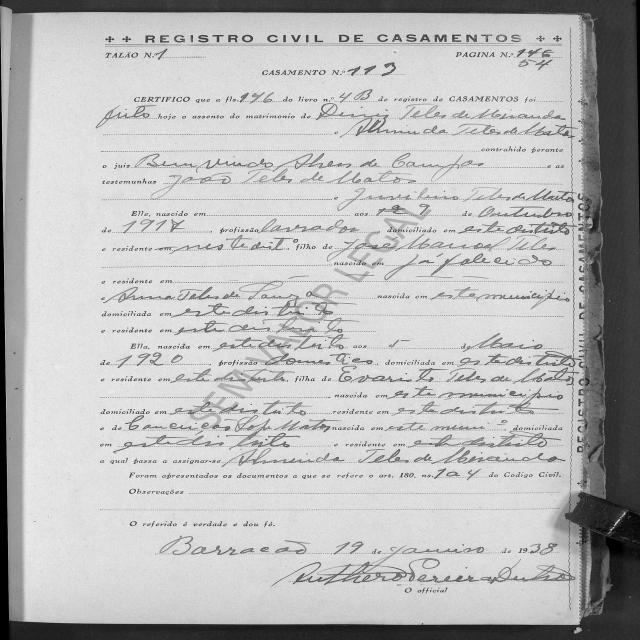 REGISTRO CIVIL DE CASAMENTOS
TALÃO N.º 1 PAGINA N.º 146
54
CASAMENTO N.º 113
CERTIFICO que a fls. 146 do livro n.º 4B de registro de CASAMENTOS foi
feito hoje o assento do matrimonio de Diniz Teles de Meranda
e Almenda Teles de Mato
contrahido perante
o juis Bemvindo Alves de Campos e as
testemunhas João Teles de Matos
e Juvelino Teles de Mato
Elle, nascido em aos de Outubro
de 1917, profissão lavrador domiciliado em este distrito
e residente em neste dit.º filho de José Manoel Teles
nascido em já falecido
e residente em
e Anna Teles de nascida em este municipio
domiciliada em este distrito
e residente em este distrito
Ella, nascida em este distrito aos 5 de Maio
de 1920 profissão domestica, domiciliada em este distrito
e residente em este distrito filha de Evaristo Teles de Mato
nascido em este municipio
domiciliado em este distrito residente em este distrito
e de Conceição Matos nascida em este muni.º domiciliada
em este distrito e residente em este distrito
a qual passa a assignar-se Almenda Teles de Meranda
Foram apresentados os documentos a que se refere o art. 180, ns. 1 a 4 do Codigo Civil.
Observações
O referido é verdade e dou fé.
Barracão 19 de Janeiro de 1938
Pereira
O official
SEM VALOR LEGAL
REGISTRO CIVIL DE CASAMENTOS